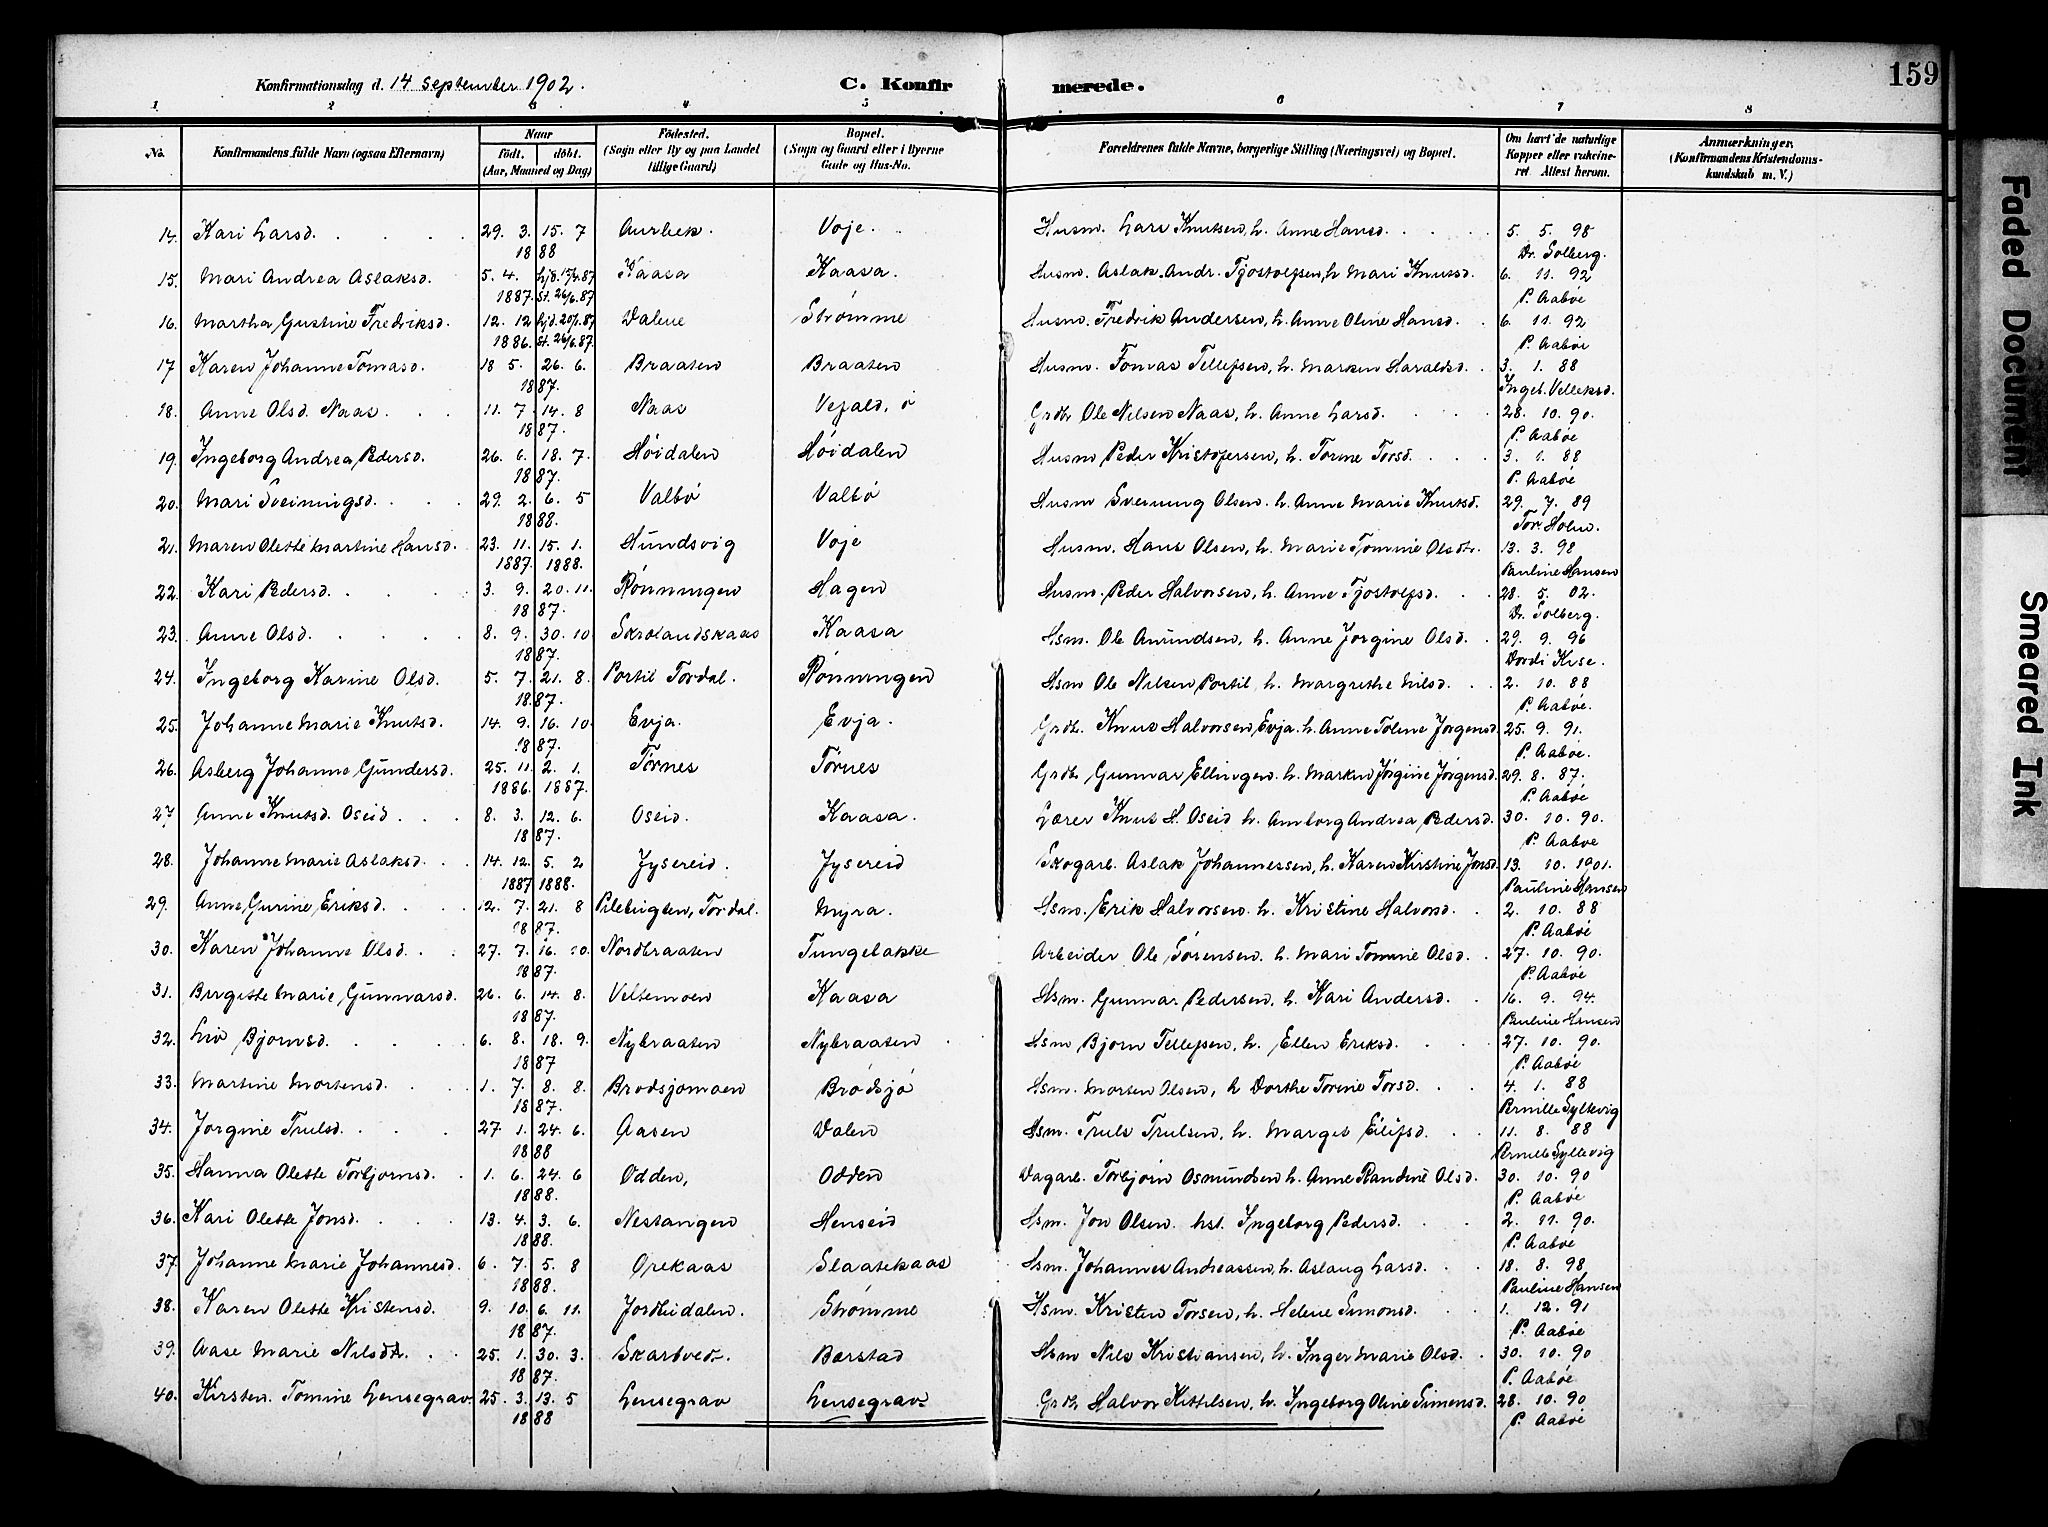 Konfirmationsdag d. 14 September 1902. C. Konfirmerede. 159
1 2 3 4 5 6 7 8
No. Konfirmandens fulde Navn (ogsaa Efternavn) Naar født, døbt. (Aar, Maaned og Dag) Födested. (Sogn eller By og paa Landet tillige Gaard) Bopæl. (Sogn og Gaard eller i Byerne Gade og Hus-No. Forældrenes fulde Navne, borgerlige Stilling (Næringsvei) og Bopæl. Om havt de naturlige Kopper eller vakcineret Attest herom. Anmærkninger. (Konfirmandens Kristendomskundskab m. V.)
14. Kari Larsd. 29. 3. 15. 7 Aurbek. Voje. Husm. Lars Knutsen, h. Anne Hansd. 5. 5. 98
1888 Dr. Solberg.
15. Mari Andrea Aslaksd. 5. 4. hjd. 15/4.87 Kaasa Kaasa. Husm. Aslak Andr. Tjostolfsen, h Mari Knutsd. 6. 11. 92
1887. st. 26/6.87 P. Aabøe
16. Martha Gustine Fredriksd. 12. 12 hjd. 20/1.87 Dalene Strømme Husm. Fredrik Andersen, h. Anne Oline Hansd. 6 11. 92
1886. st. 26/6.87. P. Aabøe
17 Karen Johanne Tomasd. 18 5. 26. 6. Braaten Braaten Husm. Tomas Tellefsen, h. Marken Haraldsd. 3. 1. 88
1887. Ingeb. Velleksd.
18. Anne Olsd. Naas. 11. 7. 14. 8 Naas Vefald, ö Grdbr Ole Nilsen Naas, h. Anne Larsd. 28. 10. 90.
1887. P. Aabøe
19. Ingeborg Andrea Pedersd. 26. 6. 18. 7. Höidalen Höidalen Husm Peder Kristofersen, h. Torine Torsd. 3. 1. 88
1887. P. Aabøe
20. Mari Sveinungsd. 29. 2. 6. 5 Valbö Valbö Husm Sveinung Olsen h. Anne Marie Knutsd. 29. 7. 89
1888. Tor Holm.
21. Maren Olette Martine Hansd. 23. 11. 15. 1. Hundsvig Voje Husm. Hans Olsen, h. Marie Tomine Olsdtr. 13. 3. 98
1887. 1888. Pauline Hansen
22. Kari Pedersd. 3. 9. 20. 11. Rønningen Hagen Husm. Peder Halvorsen, h. Anne Tjostolfsd. 28. 5. 02.
1887. Dr. Solberg.
23. Anne Olsd. 8. 9. 30. 10. Skrolandskaas Kaasa Hsm. Ole Amundsen, h. Anne Jorgine Olsd. 29. 9. 96
1887. Dordi Kise.
24. Ingeborg Karine Olsd. 5. 7. 21. 8. Portil Tordal. Rønningen Hsm Ole Nilsen Portil, h. Margrethe Nilsd. 2. 10. 88
1887. P. Aabøe.
25. Johanne Marie Knutsd. 14. 9. 16. 10. Evja. Evja. Grdb. Knut Halvorsen, Evja. h. Anne Toline Jørgensd. 25. 9. 91.
1887. P. Aabøe.
26. Asberg Johanne Gundersd. 25. 11. 2. 1. Tørnes Tørnes Grdbr Gunnar Ellingsen h. Marken Jörgine Jörgensd. 29. 8. 87.
1886. 1887. P. Aabøe
27. Anne Knutsd. Oseid. 8. 3. 12. 6. Oseid. Kaasa. Lærer Knut H. Oseid h. Amborg Andrea Pedersd. 30. 10. 90.
1887. P. Aabøe
28. Johanne Marie Aslaksd. 14. 12. 5. 2 Jysereid. Jysereid Skogarb. Aslak Johannessen, h. Karen Kirstine Jonsd. 13. 10. 1901.
1887 1888. Pauline Hansen
29. Anne Gurine Eriksd. 12. 7. 21. 8 Pilebugten, Tordal. Myra. Hsm. Erik Halvorsen. h. Kristine Halvorsd. 2. 10. 88
1887. P. Aabøe
30. Karen Johanne Olsd. 27. 7. 16. 10. Nordbraaten Tungebakke Arbeider Ole Sørensen. h. Mari Tomine Olsd. 27. 10. 90.
1887. P. Aabøe
31. Birgitte Marie Gunnarsd. 26. 6. 14. 8. Veltemoen Kaasa Hsm. Gunnar Pedersen, h. Kari Andersd. 16. 9. 94.
1887. Pauline Hansen
32. Liv Bjørnsd. 6. 8. 18. 9. Nybraaten Nybraaten Hsm Bjørn Tellefsen, h. Ellen Eriksd. 27. 10. 90.
1887 P. Aabøe
33. Martine Mortensd. 1. 7. 8. 8. Brødsjømoen Brödsjö Hsm. Morten Olsen, h Dorthe Torine Torsd. 4. 1. 88
1887. Pernille Syltevig
34. Jorgine Trulsd. 27. 1. 24. 6. Aasen Dalen Hsm. Truls Trulsen, h. Margit Eilifsd. 11. 8. 88
1888 Pernille Syltevig
35. Hanna Olette Torbjørnsd. 1. 6. 24. 6 Odden, Odden Dagarb. Torbjörn Osmundsen h. Anne Randine Olsd. 30. 10. 90
1888. P. Aabøe
36. Kari Olette Jonsd. 13. 4. 3. 6. Nestangen Henseid Hsm. Jon Olsen hst. Ingeborg Pedersd. 2. 11. 90.
1888. P. Aabøe
37. Johanne Marie Johannesd. 6. 7. 5. 8 Orekaas Slaatekaas Hsm. Johannes Andreassen, h. Aslaug Larsd. 18. 8. 98
1888. Pauline Hansen
38. Karen Olette Kristensd. 9. 10. 6. 11. Jordbidalen. Strømme Hsm. Kristen Torsen, h. Helene Simonsd. 1. 12. 91
1887. P. Aabøe
39. Aase Marie Nilsdtr. 25. 1. 30. 3. Skartvedt. Bærstad Hsm Nils Kristiansen, h. Inger Marie Olsd. 30. 10. 90
1887. P. Aabøe
40. Kirsten Tomine Lensegrav. 25. 3. 13. 5 Lensegrav Lensegrav Grdbr Halvor Kittilsen, h. Ingeborg Oline Simensd. 28. 10. 90
1888 P. Aabøe
Faded Document
Smeared Ink